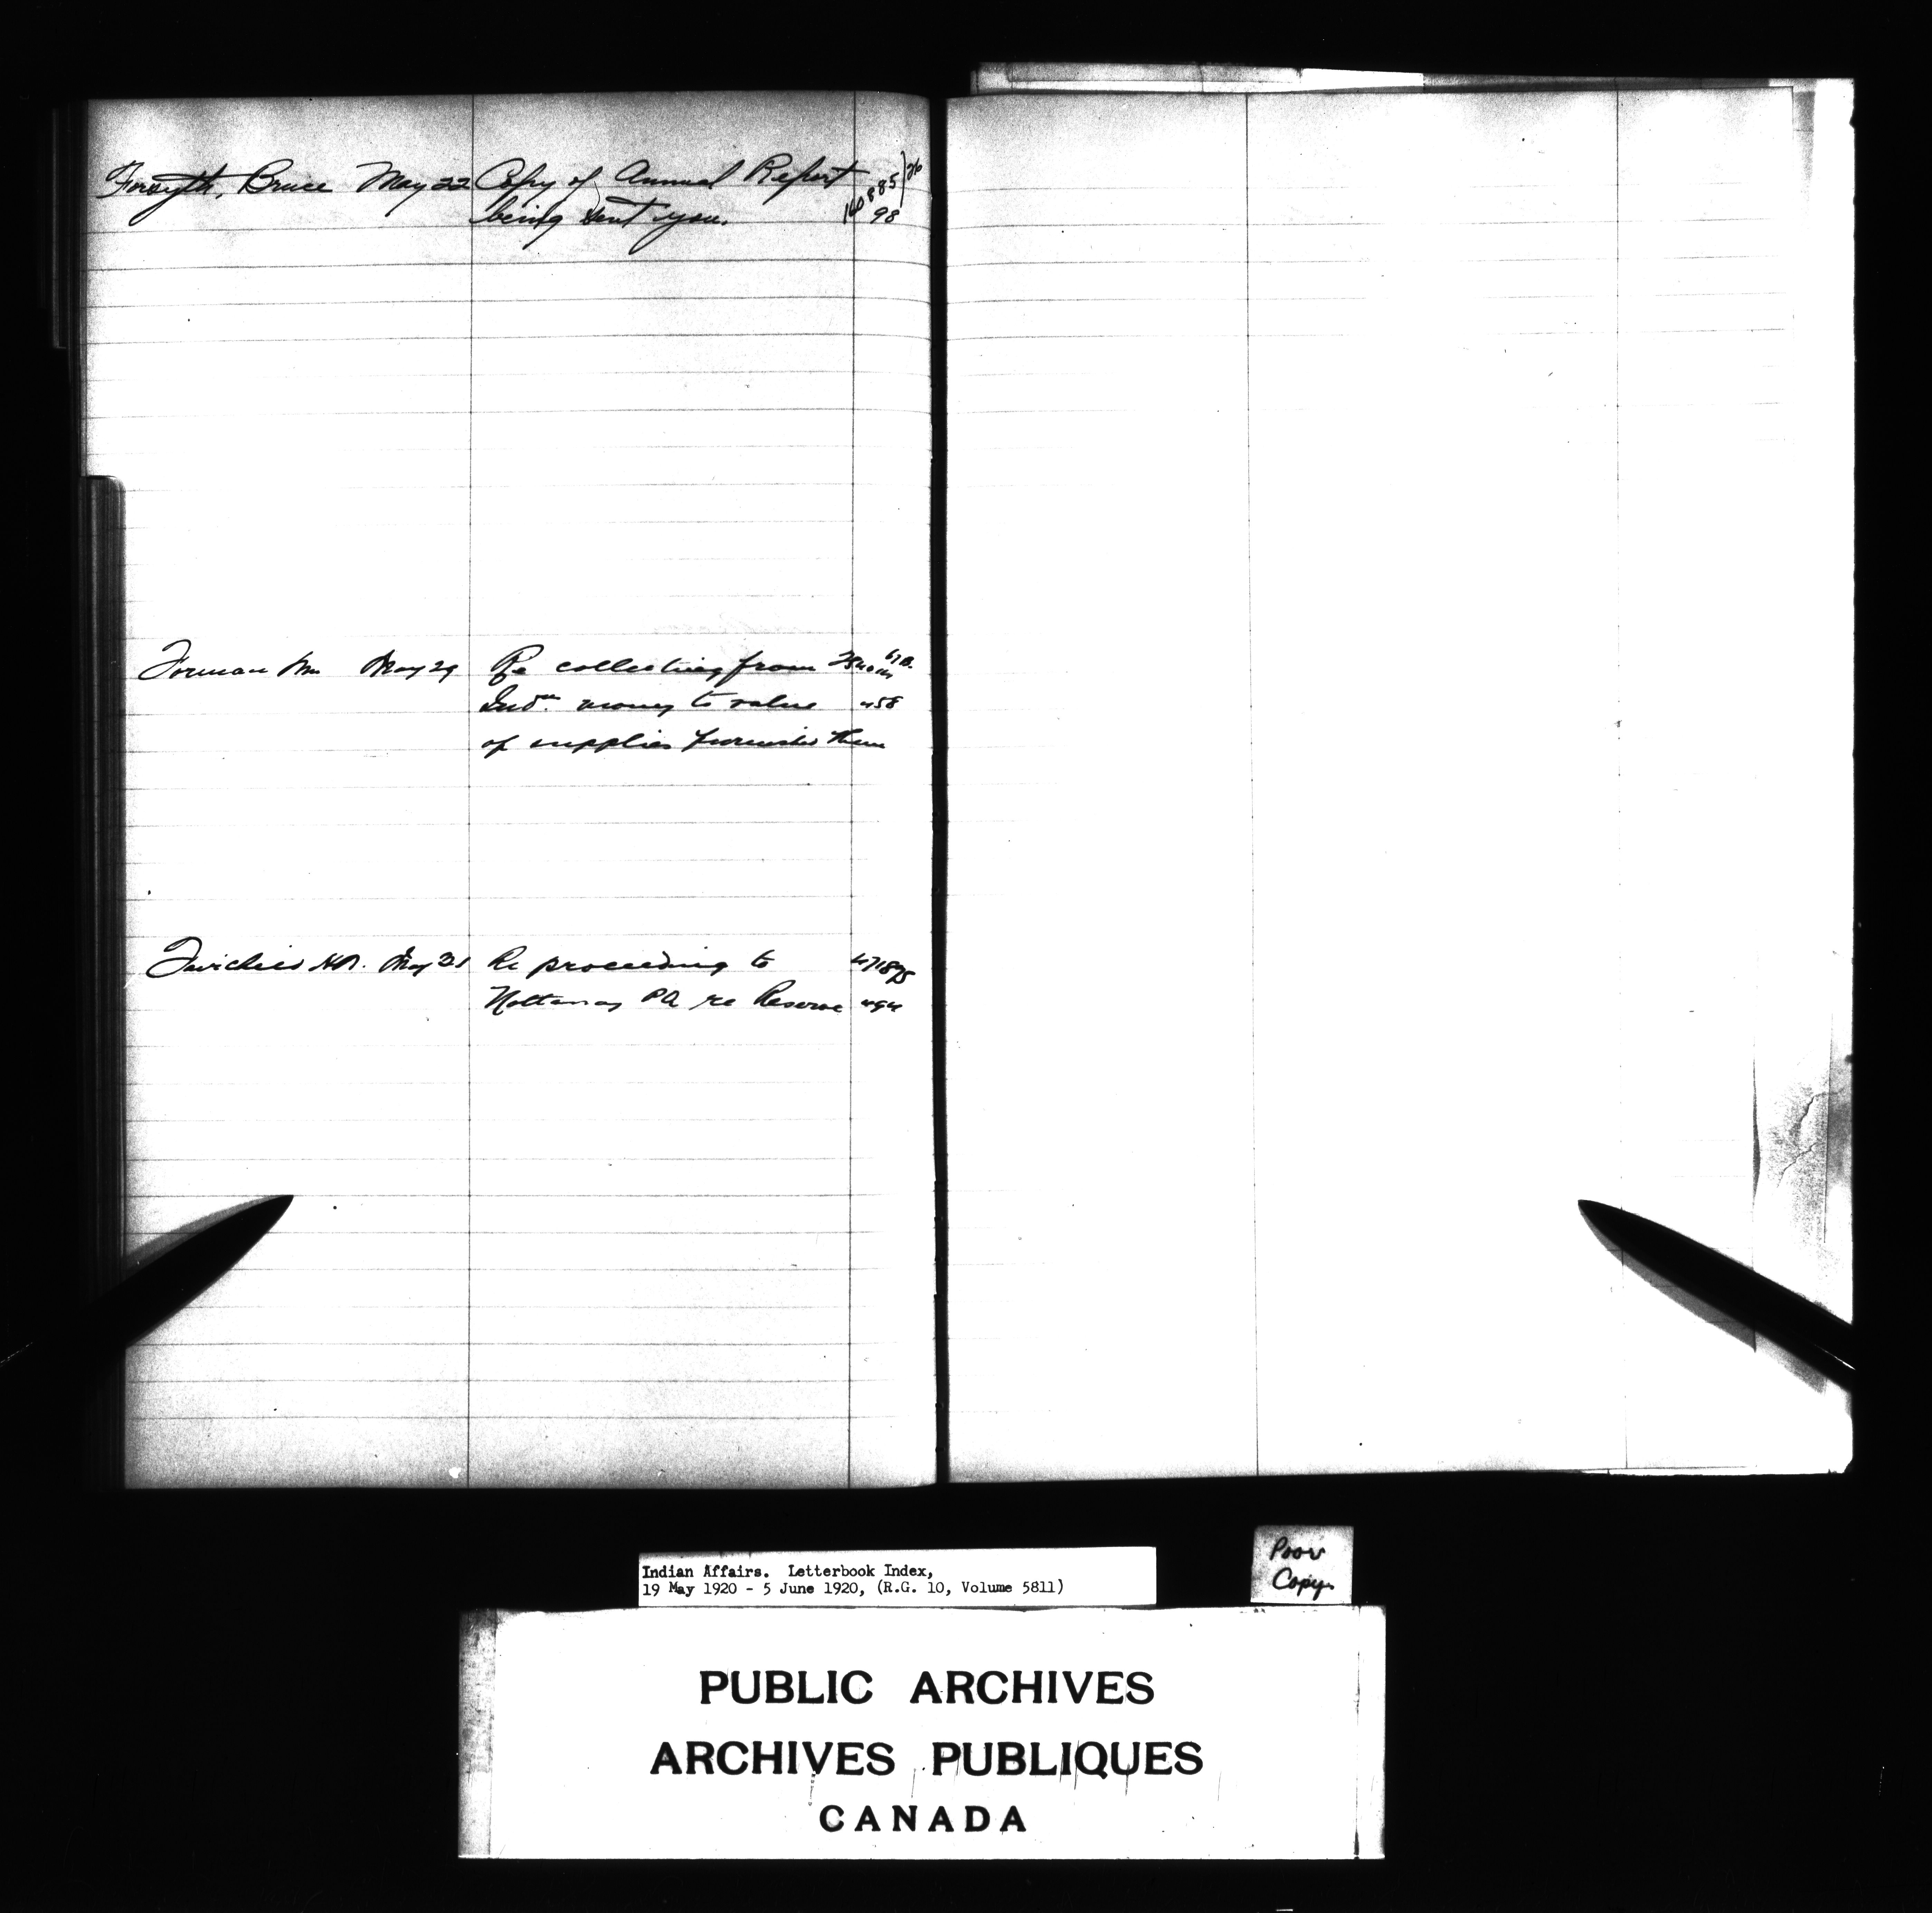 Forsyth, Bruce May 22 Copy of Annual Report 160885/26
being sent you. 98
Forman Wm May 29 Re collecting from
Indns. money to value 458
of supplies furnished them
May 31 Re proceeding to 471875
Nottaway PQ re Reserve 494
Indian Affairs. Letterbook Index,
19 May 1920 - 5 June 1920, (R.G. 10, Volume 5811)
Poor
Copy
PUBLIC ARCHIVES
ARCHIVES PUBLIQUES
CANADA